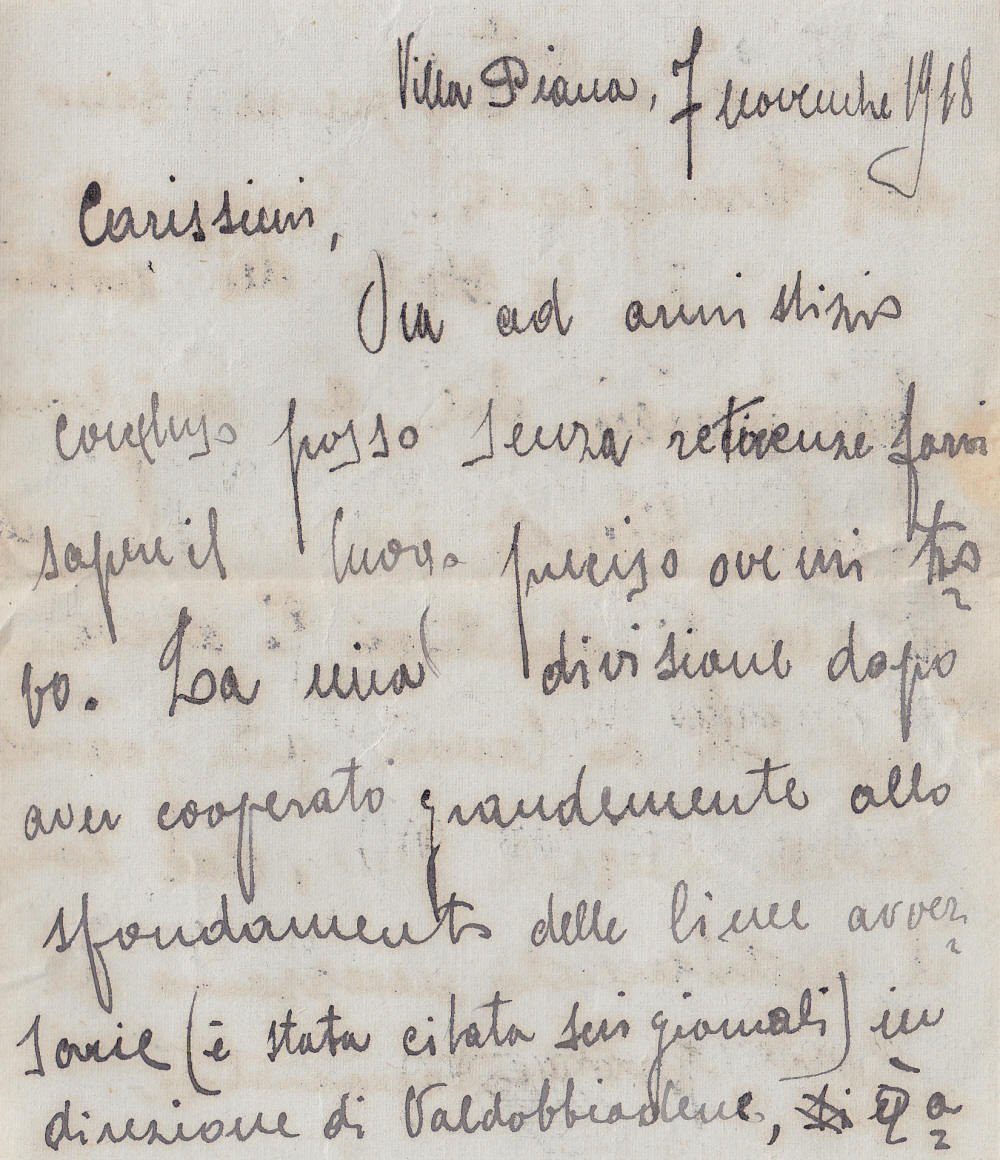 Villa Piana, 7 novembre 1918
Carissimi,
Ora ad armistizio
concluso posso senza reticenze farvi
sapere il luogo preciso ove mi tro
vo. La mia divisione dopo
aver cooperato grandemente allo
sfondamento delle linee avver
sarie (è stata citata sui giornali) in
direzione di Valdobbiadene, è